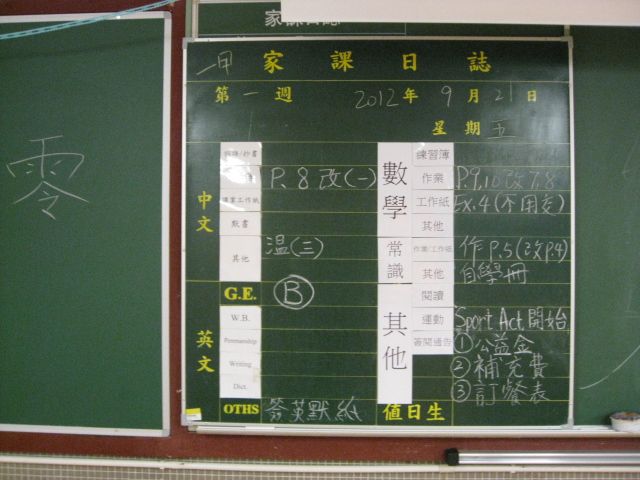 零
家課日誌
一甲 家課日誌
第一週 2012年9月21日
星期五
中文
作業 P.8 改(一)
默書
其他 温(三)
G.E. B
英文
W.B.
Penmanship
Writing
Dict.
OTHS 簽英默紙
數學
練習簿
作業 P.9,10改7.8
工作紙 Ex.4(不用交)
其他
常識
作業/工作紙 作P.5(改P.4)
其他 自學冊
其他
閱讀
運動 Sport Act.開始
簽閱通告 ①公益金
②補充費
③訂餐表
值日生